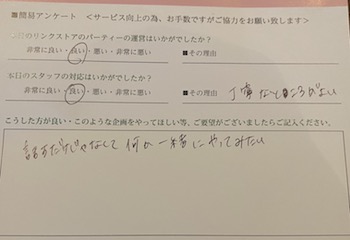 ■簡易アンケート ＜サービス向上の為、お手数ですがご協力をお願い致します＞
本日のリンクストアのパーティーの運営はいかがでしたか？
非常に良い・良い・悪い・非常に悪い ■その理由
本日のスタッフの対応はいかがでしたか？
非常に良い・良い・悪い・非常に悪い ■その理由 丁寧なところがよい
こうした方が良い・このような企画をやってほしい等、ご要望がございましたらご記入ください。
話すだけじゃなくて 何か 一緒にやってみたい